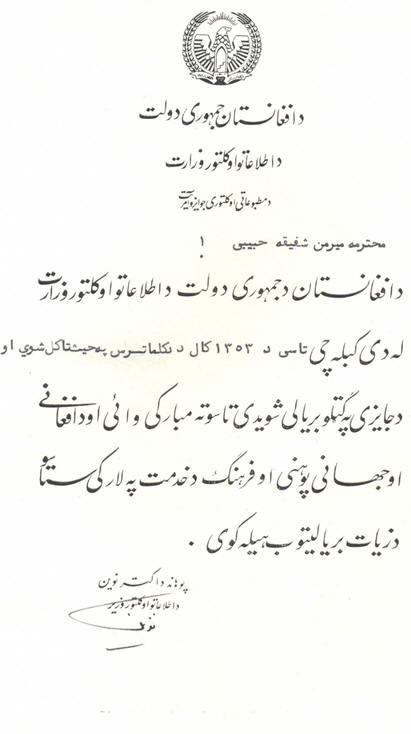 د افغانستان جمهوری دولت
د اطلاعاتو او کلتور وزارت
د مطبوعاتی او کلتوری جوایزو آمریت
محترمه میرمن شفیقه حبیبی !
د افغانستان د جمهوری دولت د اطلاعاتو او کلتور وزارت
له دی کبله چی تاسی د ۱۳۵۳ کال د نطاقی په حیث تاکل شوي او
د جایزی په گټلو بریالی شویدی تاسو ته مبارکی وائی او د افغانی
او جهانی پوهنی او فرهنگ د خدمت په لار کی ستاسو
د زیات بریالیتوب هیله کوی .
پوهاند داکتر نوین
د اطلاعاتو او کلتور وزیر